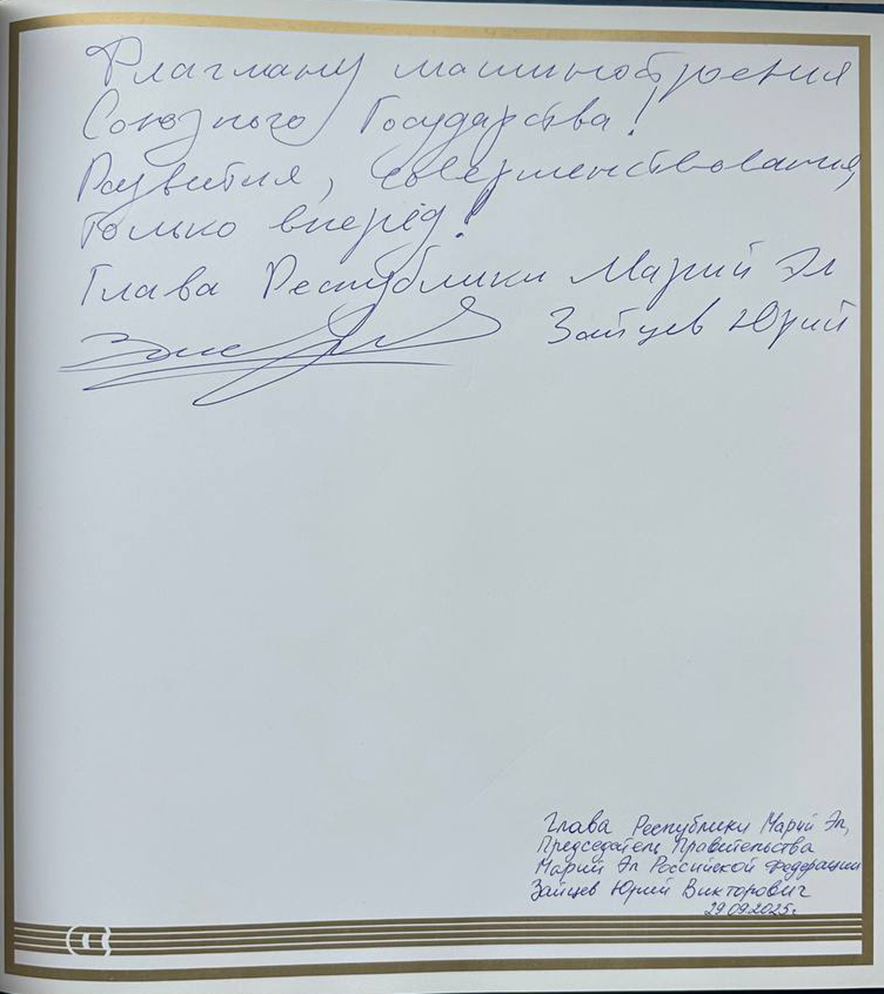 Флагману машиностроения
Союзного Государства!
Развития, совершенствования,
только вперёд!
Глава Республики Марий Эл
Зайцев Юрий
Глава Республики Марий Эл,
Председатель Правительства
Марий Эл Российской Федерации
Зайцев Юрий Викторович
29.09.2025г.